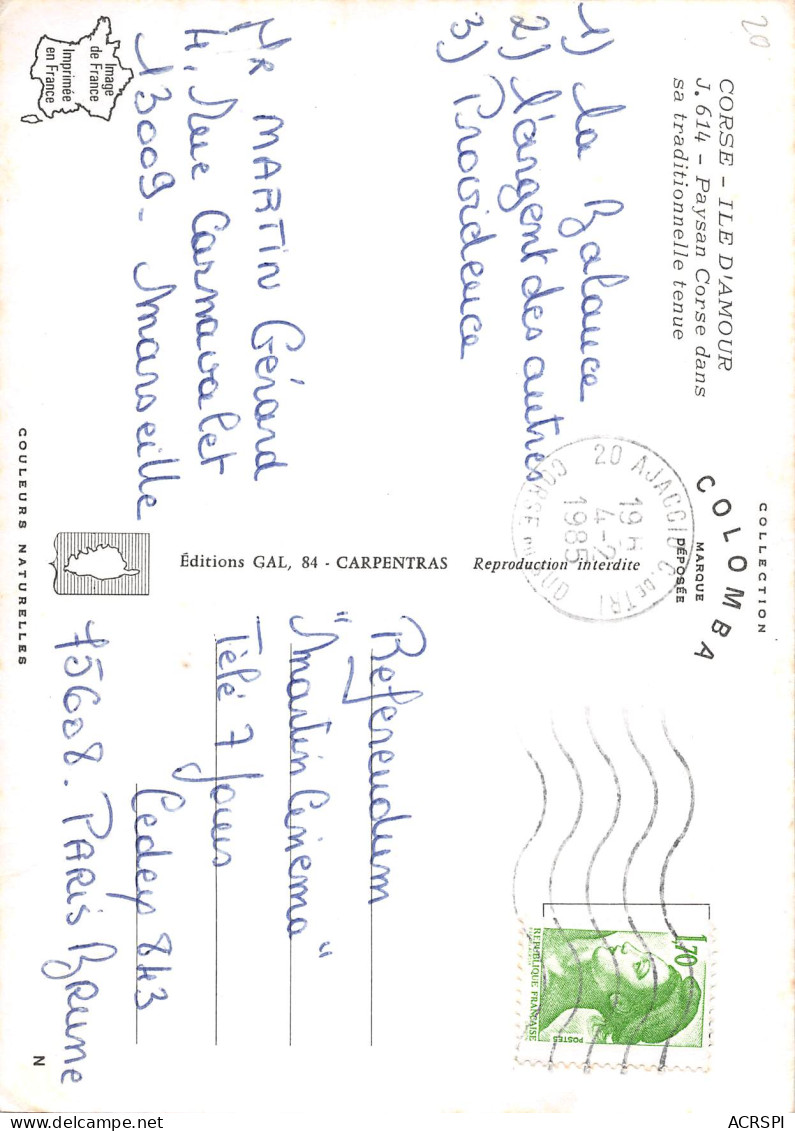 CORSE - ILE D'AMOUR
J. 614 - Paysan Corse dans
sa traditionnelle tenue
20
1) La Balance
2) l'argent des autres
3) Providence
Mr MARTIN Gérard
4, Rue Carnavalet
13009 - Marseille
Image
de France
Imprimée
en France
COLLECTION
COLOMBA
MARQUE
DÉPOSÉE
20 AJACCIO C. DE TRI
19H
4-2
1985
CORSE DU SUD
Éditions GAL, 84 - CARPENTRAS Reproduction interdite
COULEURS NATURELLES
1,70
REPUBLIQUE FRANÇAISE
POSTES
Referendum
"Martin Cinema"
Télé 7 Jours
Cedex 843
75608. PARIS BRUNE
N
ACRSPI